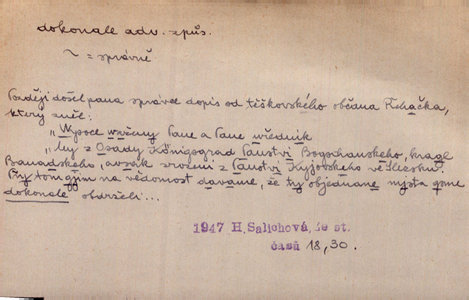 dokonale adv. způs.
~ = správně
Později došel pana správce dopis od těškovského občana Řeháčka,
který zněl:
„Wysoce wzržený Pane a Pane wředník
„my z Osady Königsgrad Paustvi Bogschanskeho, kragl
Banadskeho, avšák zrozeni z Paustvi Kyjovskeho ve Slezsku.
Při tom gim na vědomost dawame, že ty objednane mysta gsme
dokonale obdrželi...
1947 H. Salichová, Ze st.
časů 18, 30.